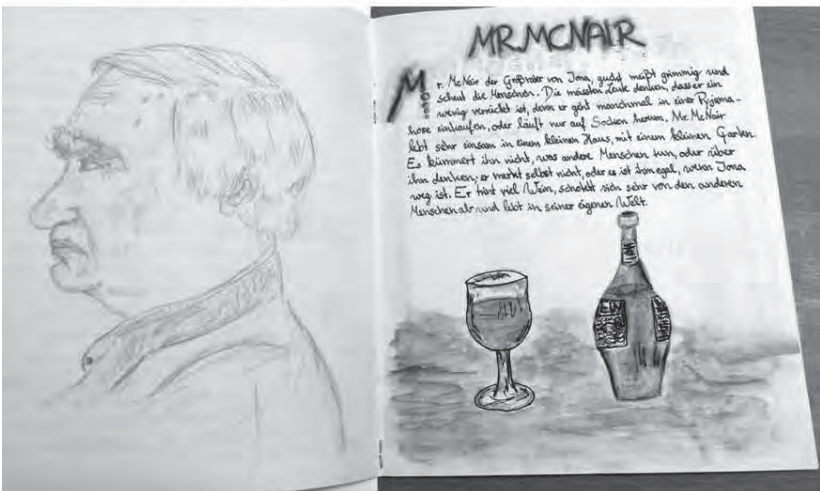 MR. MCNAIR
Mr. McNair der Großvater von Jona, guckt meißt grimmig und
scheut die Menschen. Die meisten Leute denken, dass er ein
wenig verrückt ist, denn er geht manchmal in einer Pyjama-
hose einkaufen, oder läuft nur auf Socken herum. Mr. McNair
lebt sehr einsam in einem kleinen Haus, mit einem kleinen Garten.
Es kümmert ihn nicht, was andere Menschen tun, oder über
ihn denken, er merkt selbst nicht, oder es ist ihm egal, wenn Jona
weg ist. Er trinkt viel Wein, schottet sich sehr von den anderen
Menschen ab und lebt in seiner eigenen Welt.